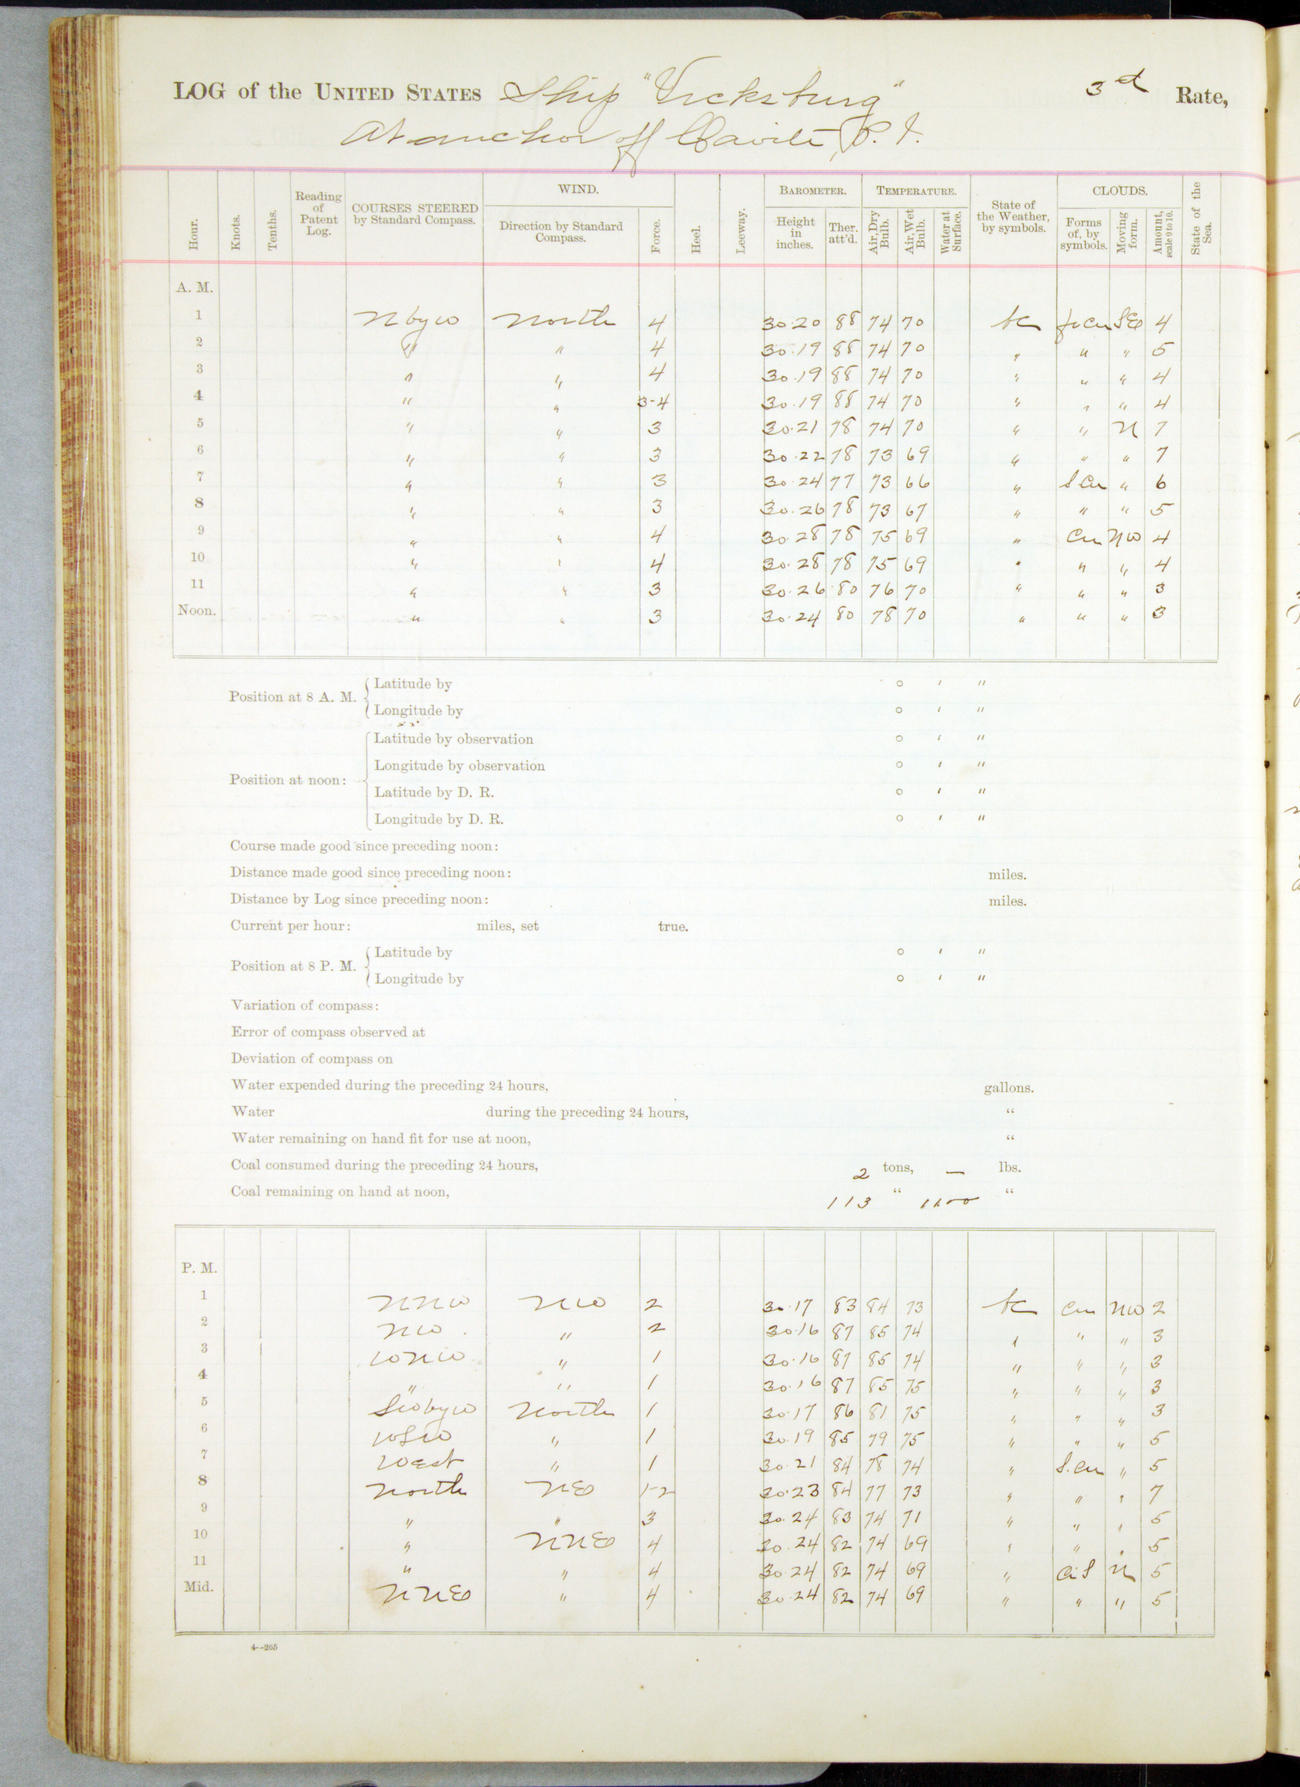 LOG of the UNITED STATES Ship "Vicksburg" 3rd Rate,
At anchor off Cavite, P. I.
Hour. Knots. Tenths. Reading of Patent Log. COURSES STEERED by Standard Compass. WIND. Direction by Standard Compass. Force. Heel. Leeway. BAROMETER. Height in inches. Ther. att'd. TEMPERATURE. Air, Dry Bulb. Air, Wet Bulb. Water at Surface. State of the Weather, by symbols. CLOUDS. Forms of, by symbols. Moving form. Amount, scale 0 to 10. State of the Sea.
A. M.
1 N by W North 4 30.20 88 74 70 bc SE 4
2 " " 4 30.19 88 74 70 " " " 5
3 " " 4 30.19 88 74 70 " " " 4
4 " " 3-4 30.19 88 74 70 " " " 4
5 " " 3 30.21 78 74 70 " " N 7
6 " " 3 30.22 78 73 69 " " " 7
7 " " 3 30.24 77 73 66 " S Cu " 6
8 " " 3 30.26 78 73 67 " " " 5
9 " " 4 30.28 78 75 69 " Cu NW 4
10 " " 4 30.28 78 75 69 " " " 4
11 " " 3 30.26 80 76 70 " " " 3
Noon. " " 3 30.24 80 78 70 " " " 3
Position at 8 A. M. Latitude by ° ' "
Longitude by ° ' "
Position at noon: Latitude by observation ° ' "
Longitude by observation ° ' "
Latitude by D. R. ° ' "
Longitude by D. R. ° ' "
Course made good since preceding noon:
Distance made good since preceding noon: miles.
Distance by Log since preceding noon: miles.
Current per hour: miles, set true.
Position at 8 P. M. Latitude by ° ' "
Longitude by ° ' "
Variation of compass:
Error of compass observed at
Deviation of compass on
Water expended during the preceding 24 hours, gallons.
Water during the preceding 24 hours, "
Water remaining on hand fit for use at noon, "
Coal consumed during the preceding 24 hours, 2 tons, — lbs.
Coal remaining on hand at noon, 113 " "
P. M.
1 NNW NW 2 30.17 83 84 73 bc Cu NW 2
2 NW " 2 30.16 87 85 74 " " " 3
3 WNW " 1 30.16 87 85 74 " " " 3
4 " " 1 30.16 87 85 75 " " " 3
5 SW by W North 1 30.17 86 81 75 " " " 3
6 WSW " 1 30.19 85 79 75 " " " 5
7 West " 1 30.21 84 78 74 " S. Cu " 5
8 North NE 1-2 30.23 84 77 73 " " " 7
9 " " 3 30.24 83 74 71 " " " 5
10 " NNE 4 30.24 82 74 69 " " " 5
11 " " 4 30.24 82 74 69 " Ci S N 5
Mid. NNE " 4 30.24 82 74 69 " " " 5
4--265